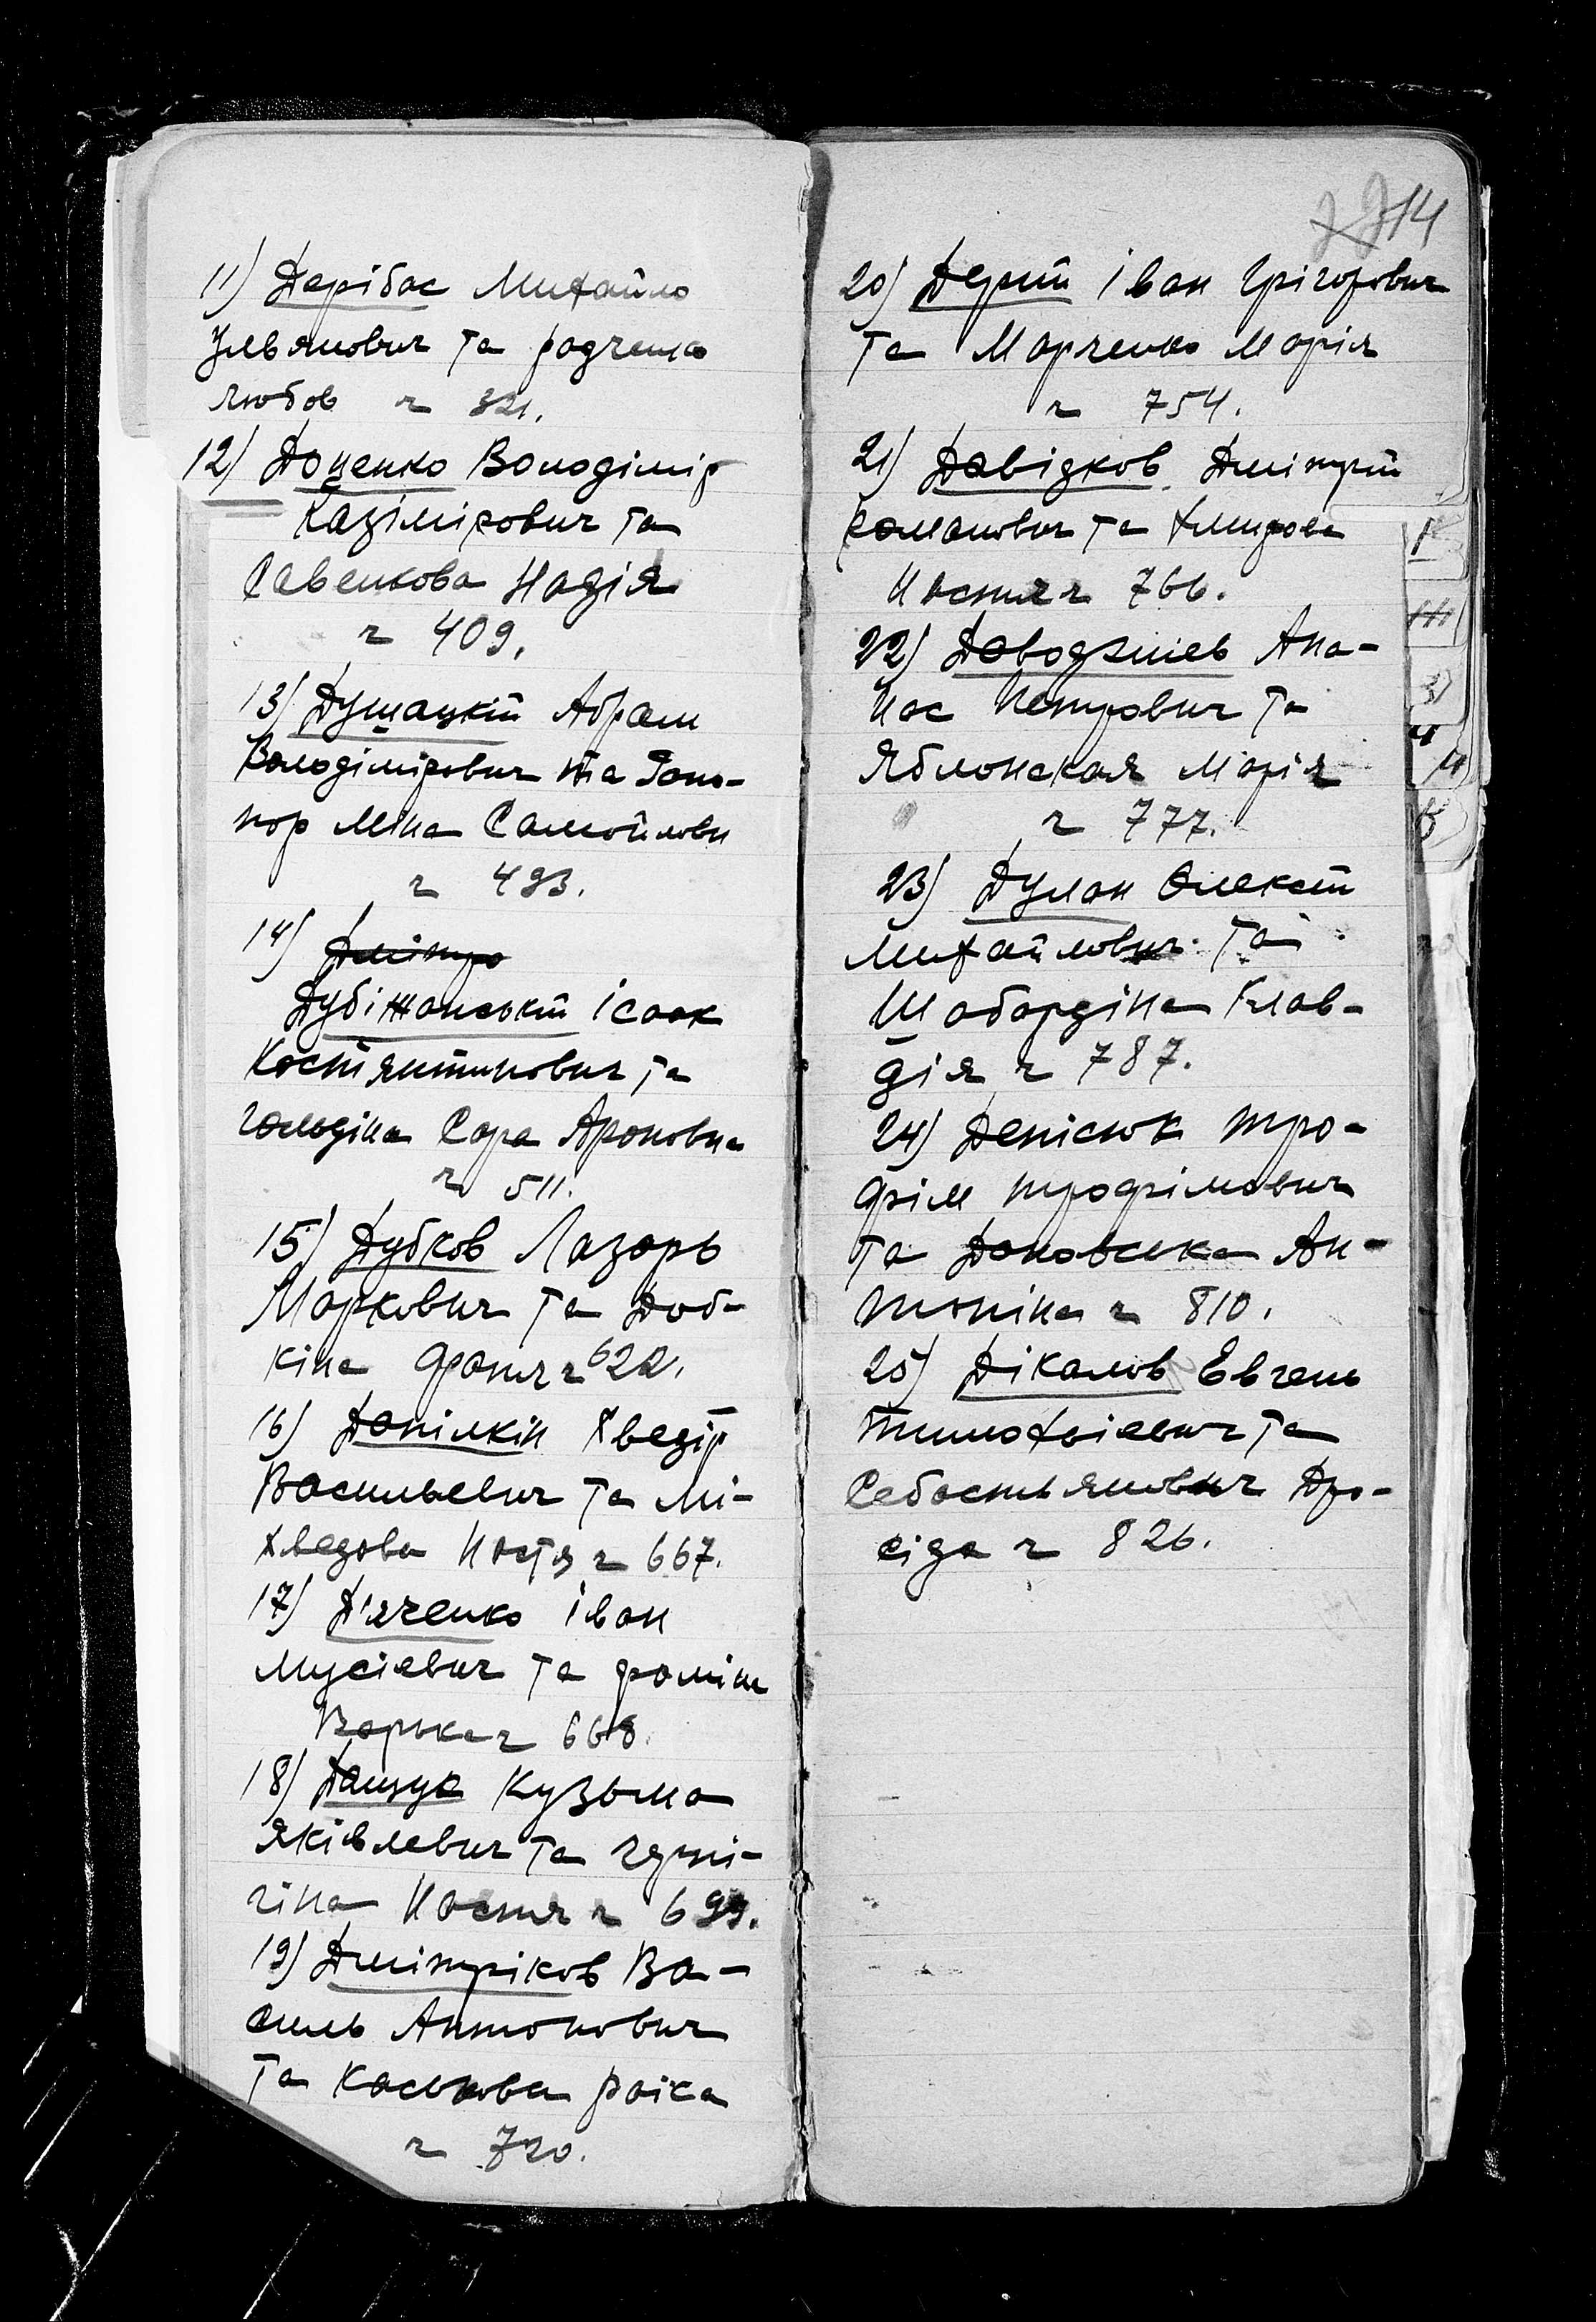 11) Дерібас Михайло
Ульянович та Радченко
Любов ч 321.
12) Доценко Володімір
Казімірович та
Савенкова Надія
ч 409.
13) Душацкій Абрам
Володімірович та Гоно-
пор Міна Самойловн
ч 493.
14) Дмітро
Дубіжанській Ісаак
Костянтинович та
Гольдіна Сара Ароновна
ч 511.
15) Дубков Лазарь
Маркович та Доб-
кіна Фаня ч 622.
16) Данілкін Хведір
Васильевич та Мі-
хведова Настя ч 667.
17) Д'яченко Іван
Мусіевич та Фоміна
Варька ч 668.
18) Дащук Кузьма
Яківлевич та
гіна Настя ч 699.
19) Дмітріков Ва-
силь Антонович
та Каськова Раіса
ч 720.
14
20) Дерій Іван Грігорович
та Марченко Марія
ч 754.
21) Давідков Дмітрій
Романович та Хмирова
Настя ч 766.
22) Даводзішев Апа-
нас Петрович та
Яблонская Марія
ч 777.
23) Дулан Олексій
Михайлович та
Шабардіна Клав-
дія ч 787.
24) Денісюк Тро-
фім Трофімович
та Дановська Ан-
тоніна ч 810.
25) Дікалов Евгень
Тимохвіевич та
Себастьянович Дро-
сіда ч 826.